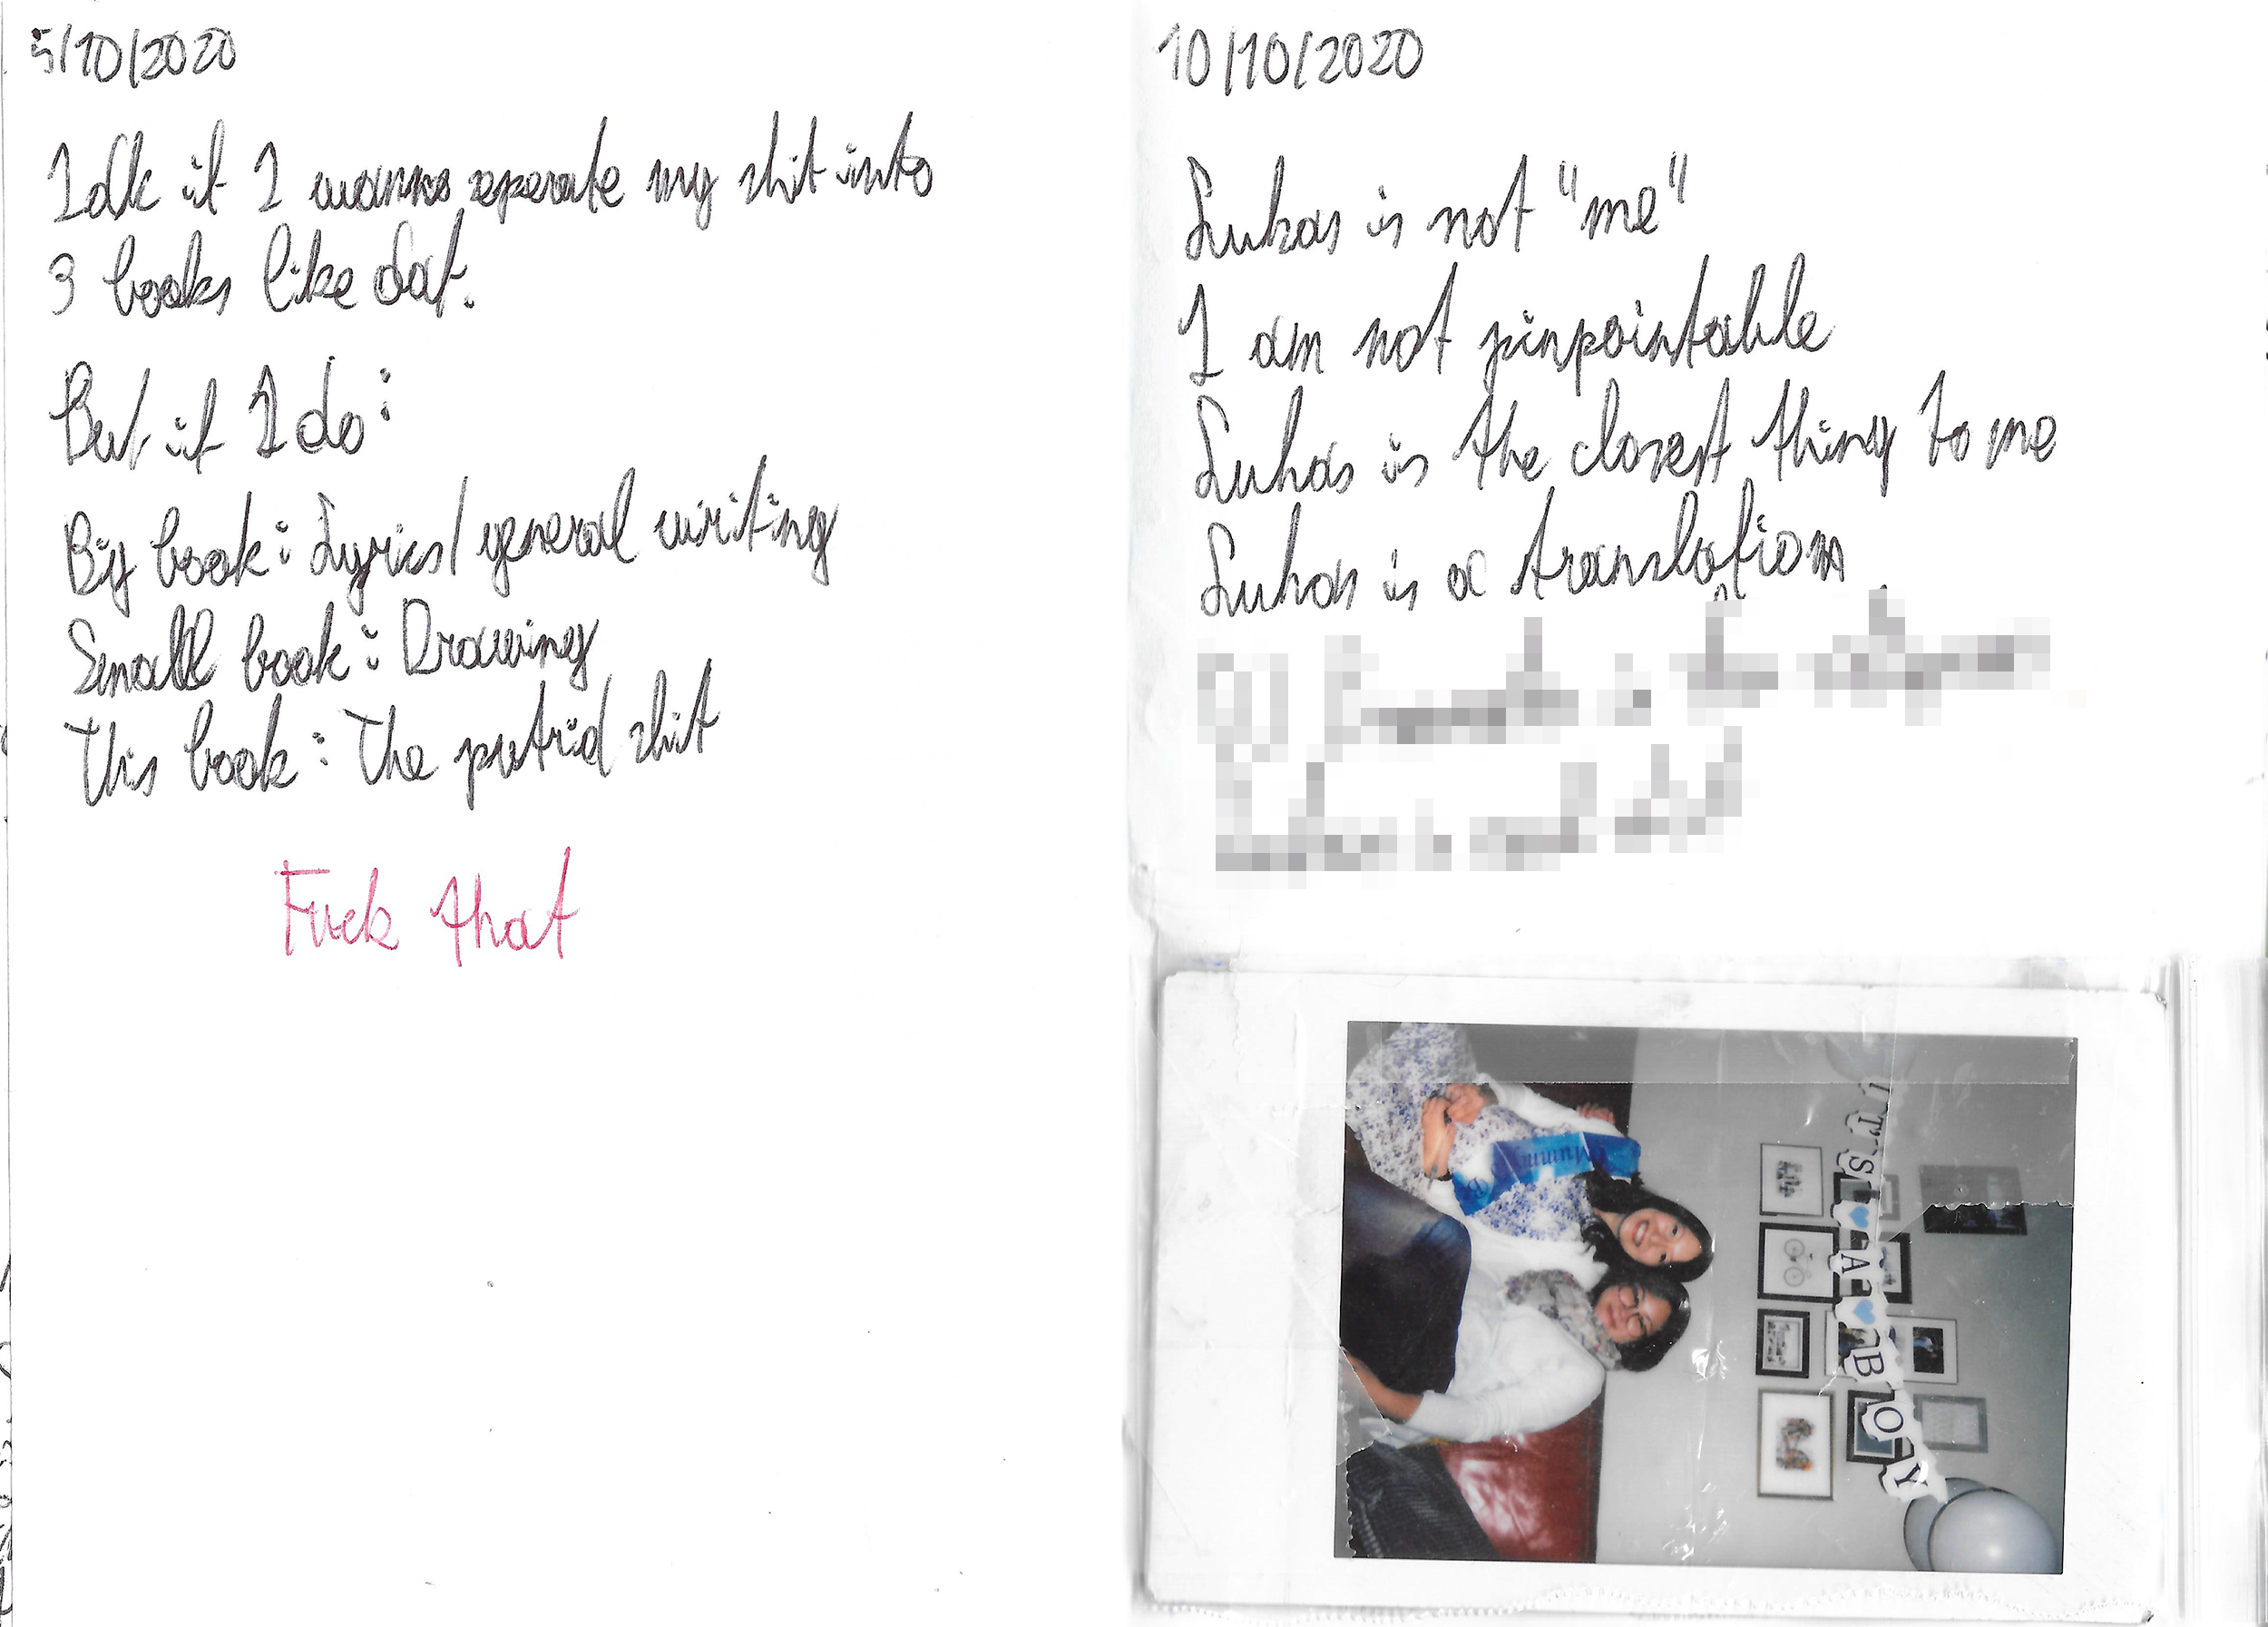 5/10/2020
Idk if I wanna seperate my shit into
3 books like dat.
But if I do:
Big book: Lyrics/general writing
Small book: Drawing
This book: The putrid shit
Fuck that
10/10/2020
Lukas is not "me"
I am not pinpointable
Lukas is the closest thing to me
Lukas is a translation
Mummy
IT'S A BOY